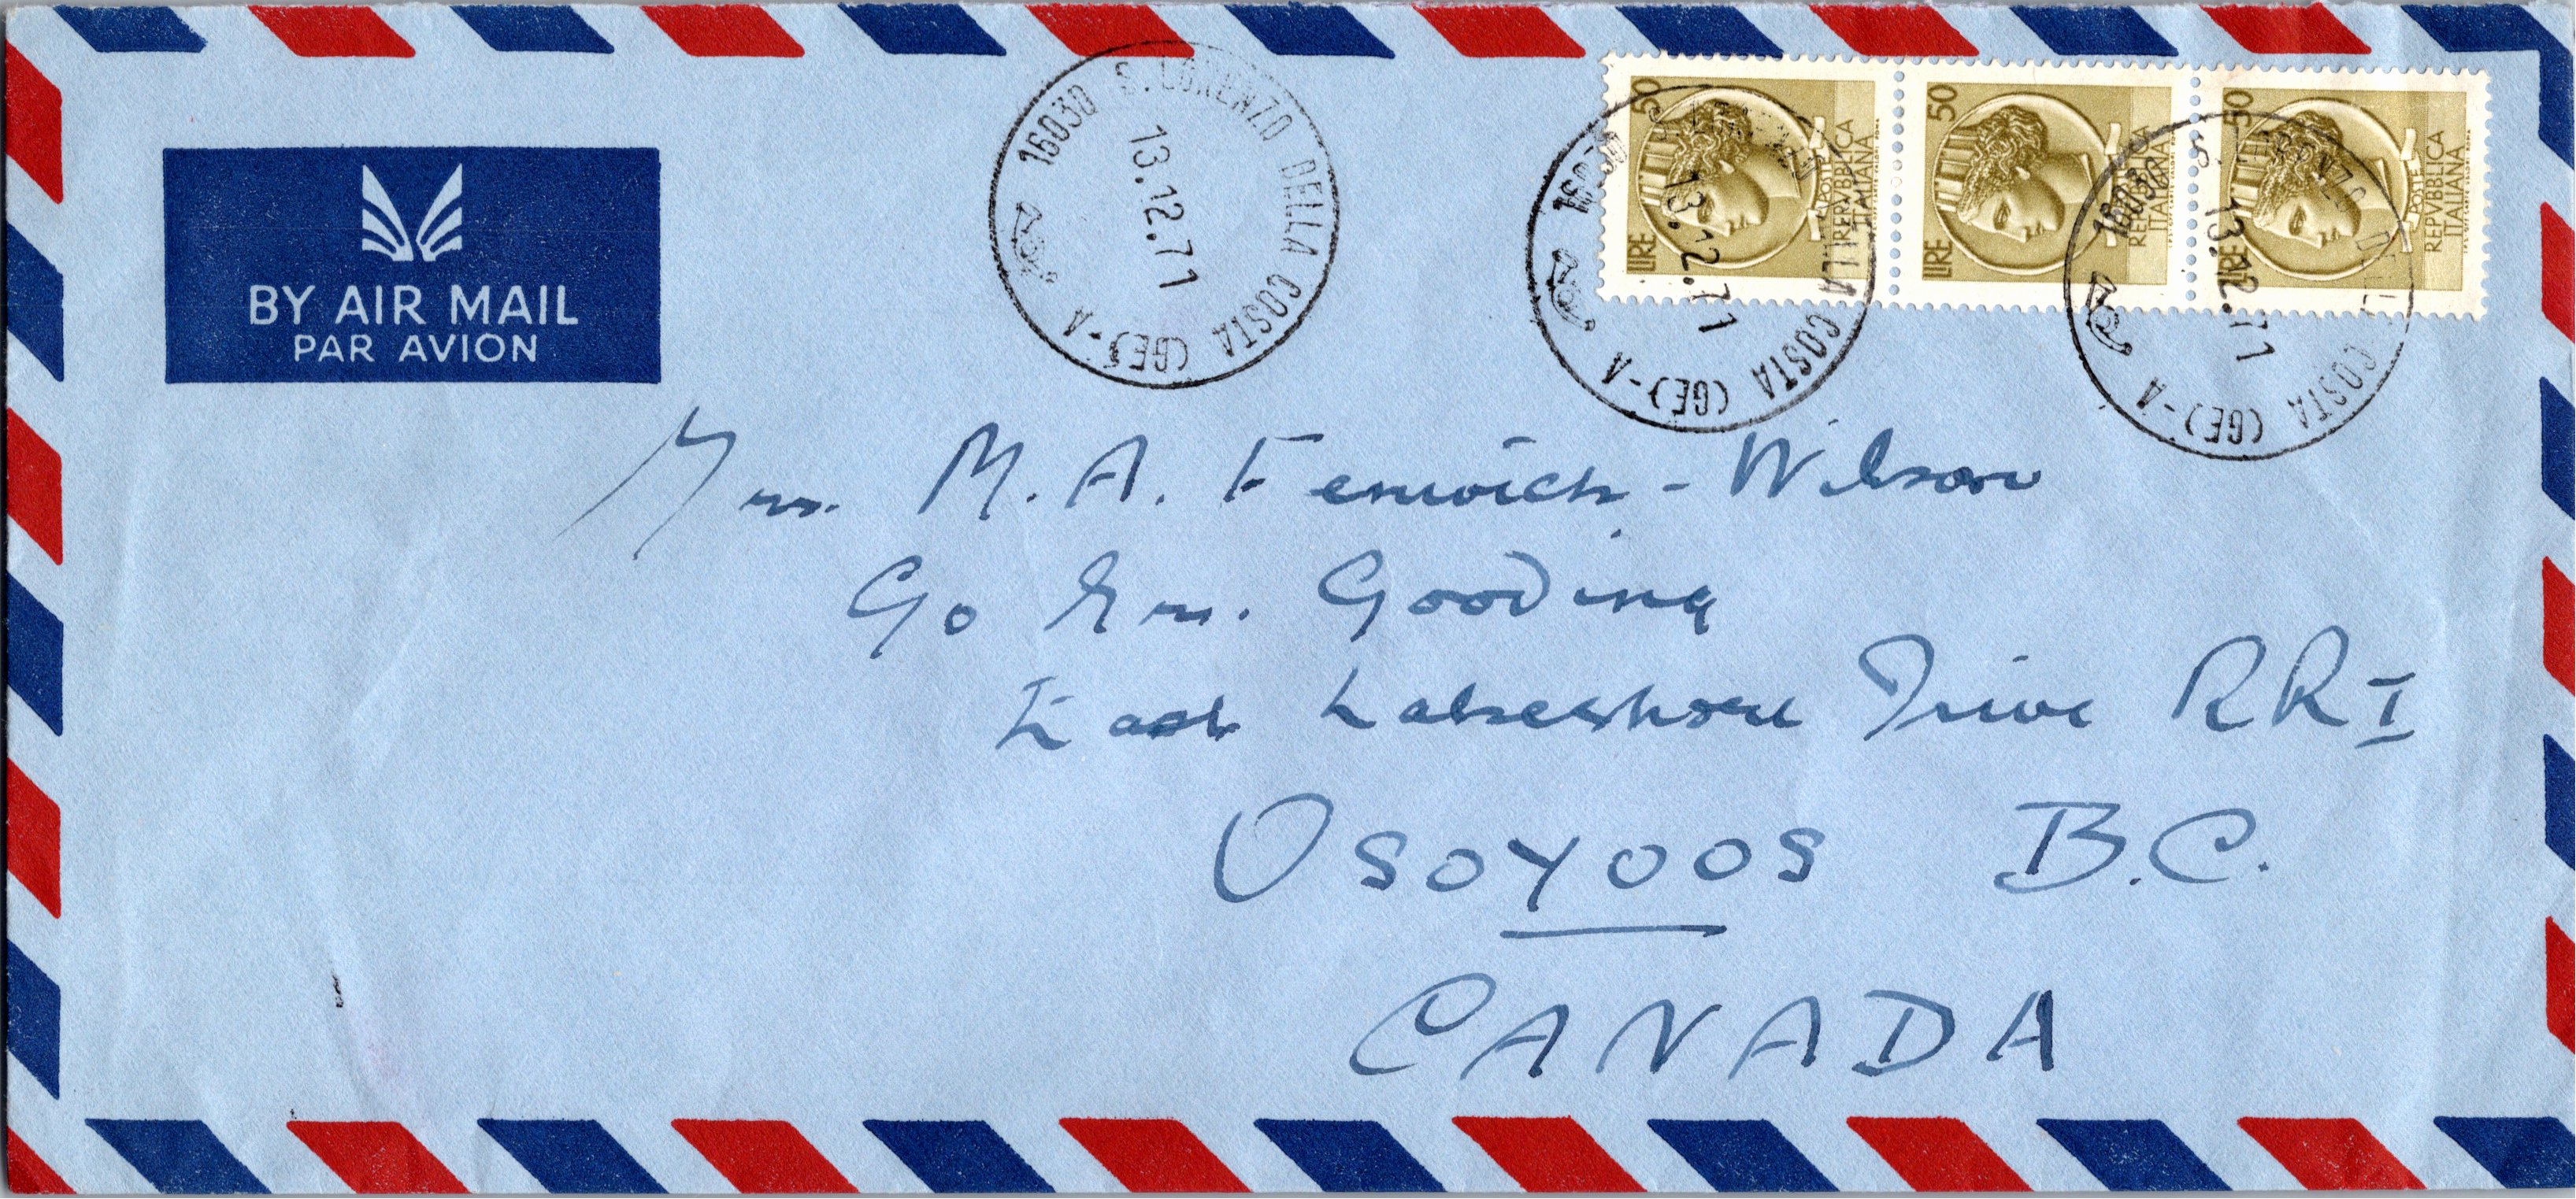 BY AIR MAIL
PAR AVION
16030 S. LORENZO DELLA COSTA (GE) - A
13.12.71
16030 S. LORENZO DELLA COSTA (GE) - A
13.12.71
16030 S. LORENZO DELLA COSTA (GE) - A
13.12.71
LIRE 50
POSTE
REPVBBLICA
ITALIANA
LIRE 50
POSTE
REPVBBLICA
ITALIANA
LIRE 50
POSTE
REPVBBLICA
ITALIANA
Mrs. M. A. Fenwick-Wilson
c/o Mrs. Gooding
East Lakeshore Drive RR I
OSOYOOS B.C.
CANADA